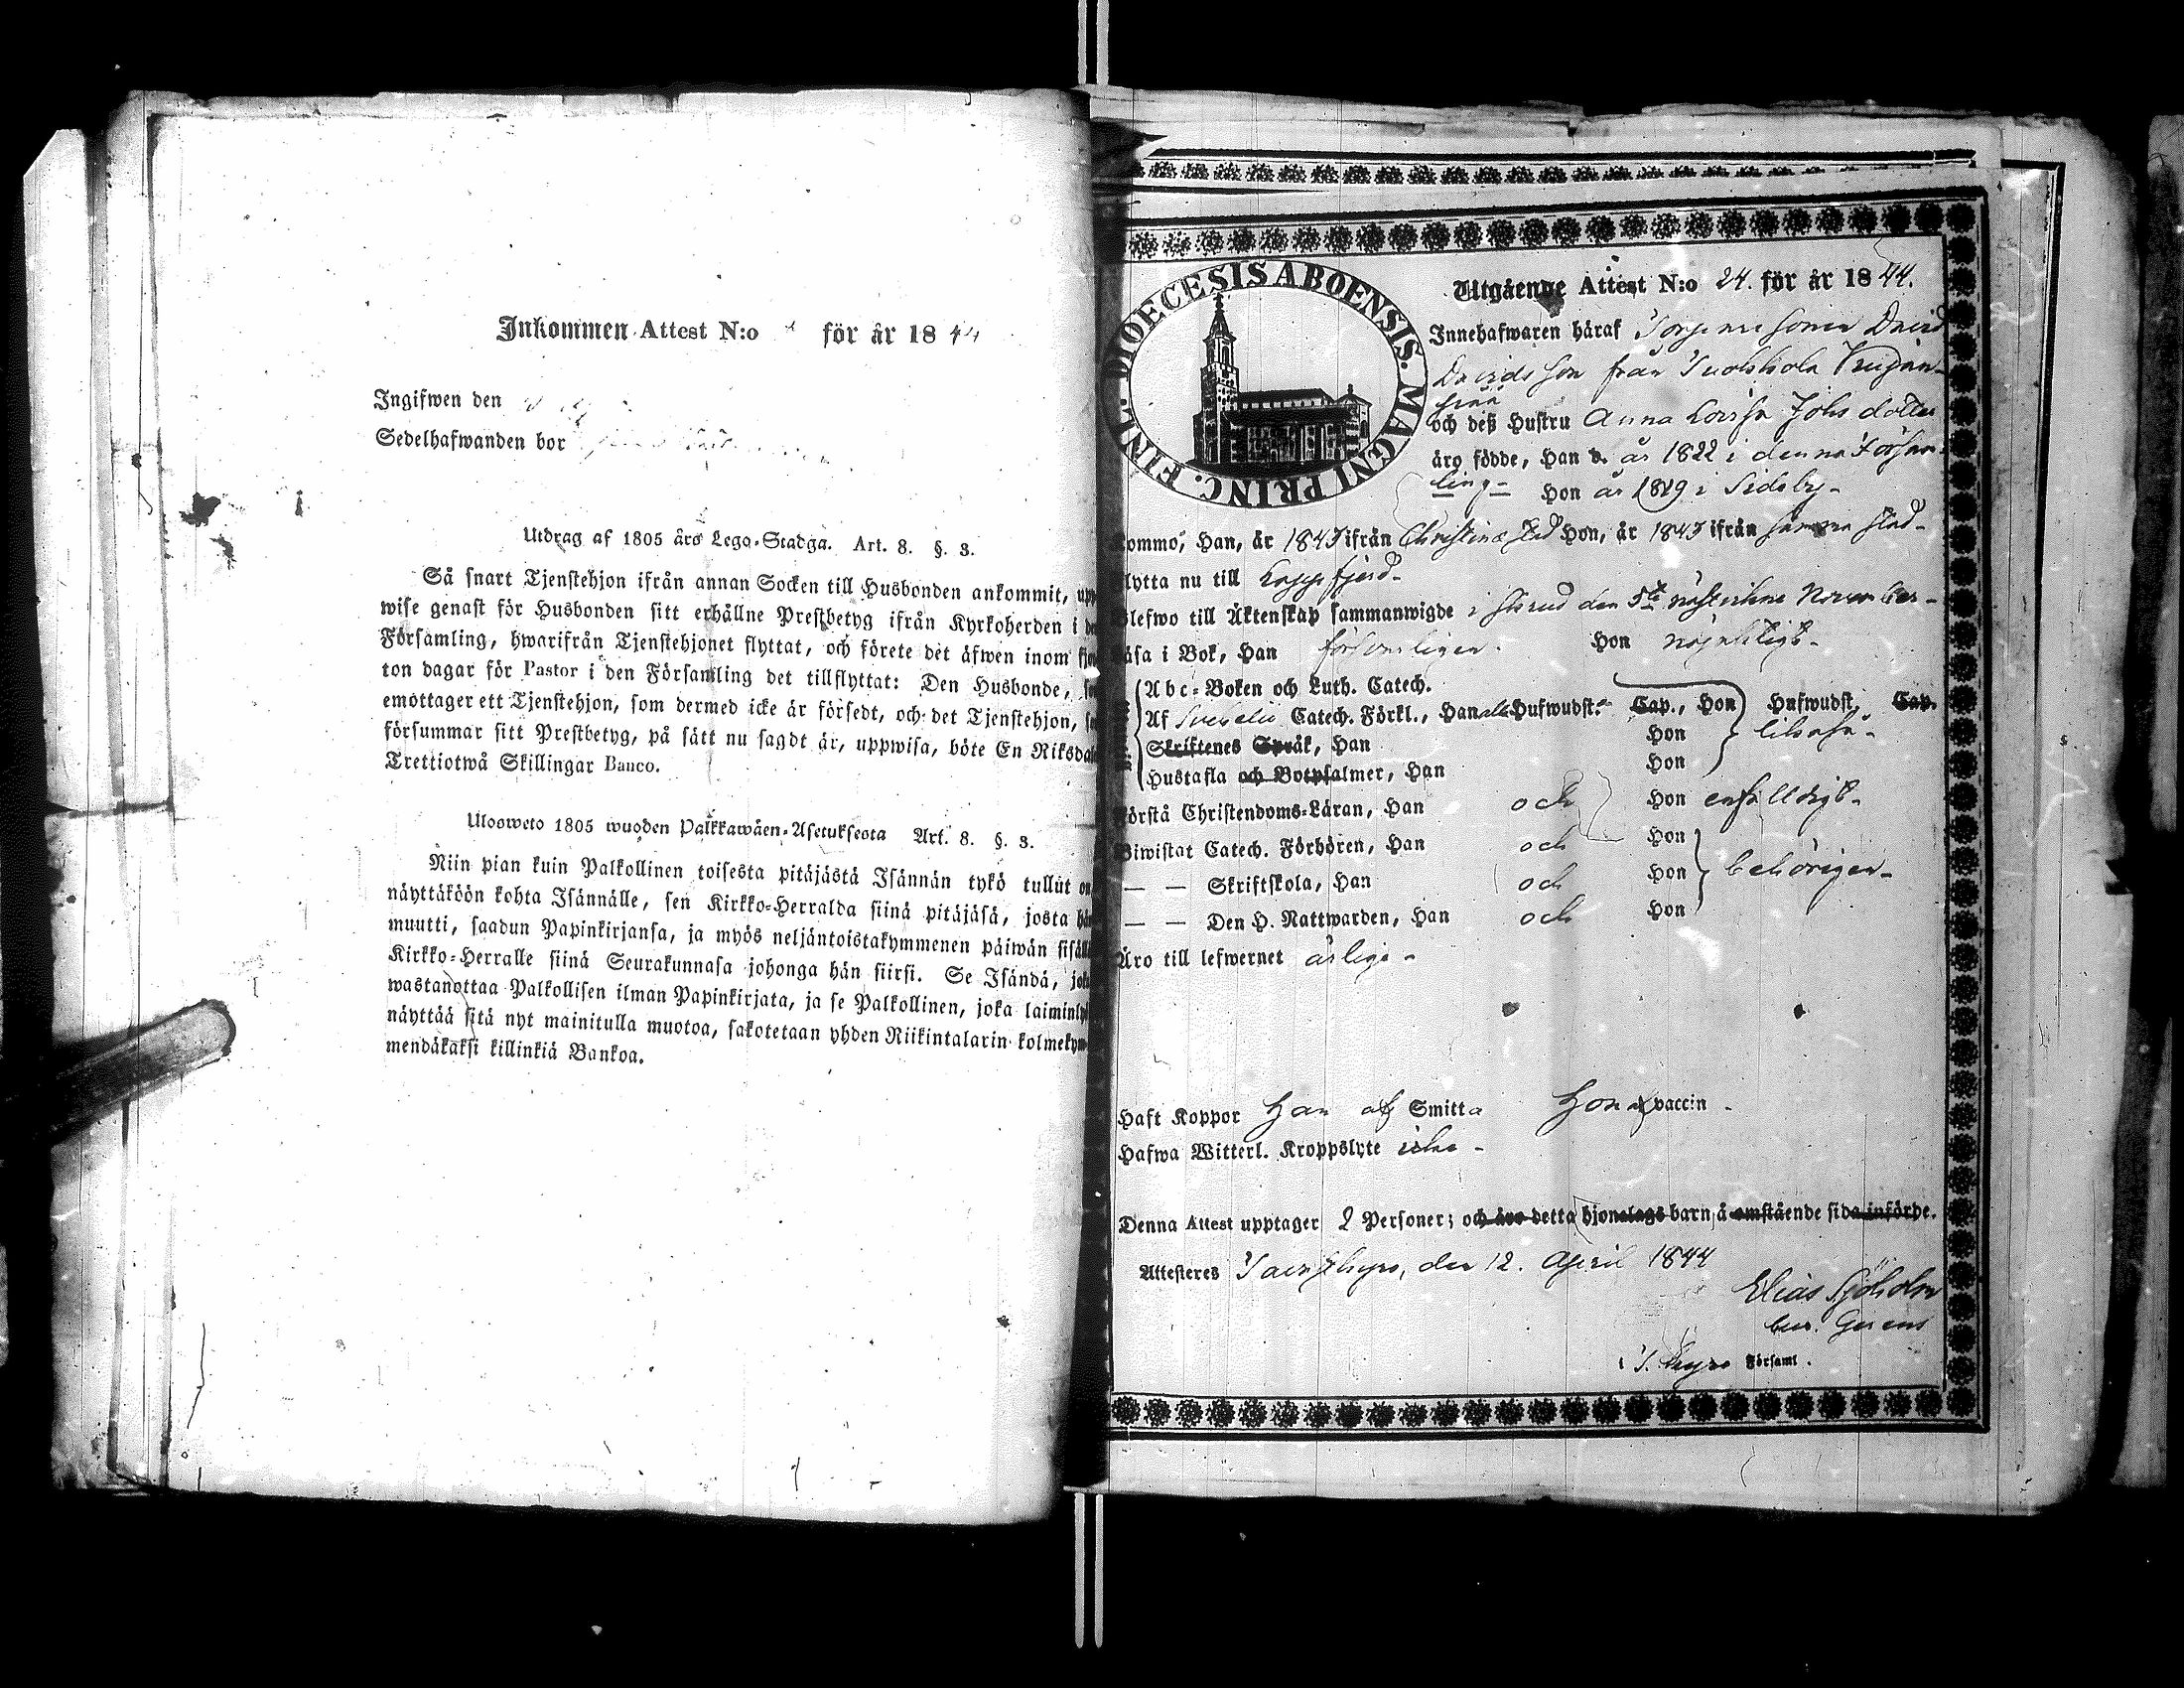 Inkommen Attest N:o för år 1844
Ingifwen den
Sedelhafwanden bor
Utdrag af 1805 års Lego-Stadga. Art. 8. §. 3.
Så snart Tjenstehjon ifrån annan Socken till Husbonden ankommit, upp
wise genast för Husbonden sitt erhållne Prestbetyg ifrån Kyrkoherden i de
Församling, hwarifrån Tjenstehjonet flyttat, och förete det äfwen inom fjor
ton dagar för Pastor i den Församling det tillflyttat: Den Husbonde,
emottager ett Tjenstehjon, som dermed icke är försedt, och det Tjenstehjon,
försummar sitt Prestbetyg, på sätt nu sagdt är, uppwisa, böte En Riksdal
Trettiotwå Skillingar Banco.
Ulosweto 1805 wuoden Palkkawäen-Asetuksesta Art. 8. §. 3.
Niin pian kuin Palkollinen toisesta pitäjästä Isännän tykö tullut on,
näyttäköön kohta Isännälle, sen Kirkko-Herralda siinä pitäjäsä, josta hän
muutti, saadun Papinkirjansa, ja myös neljäntoistakymmenen päiwän sisällä
Kirkko-Herralle siinä Seurakunnasa johonga hän siirsi. Se Isändä, joka
wastanottaa Palkollisen ilman Papinkirjata, ja se Palkollinen, joka laiminlyö
näyttää sitä nyt mainitulla muotoa, sakotetaan yhden Riikintalarin kolmekym-
mendäkaksi killinkiä Bankoa.
FINL. DIOECESIS ABOENSIS. MAGNI PRINC.
Utgående Attest N:o 24. för år 1844.
Innehafwaren häraf Torpare sonen David
Davids son från
och deß Hustru Anna Lovisa Johs dotter
äro födde, Han d. år 1822 i denna Försam-
ling - Hon år 1819 i Sideby -
Kommo, Han, år 1843 ifrån Christinæstad Hon, år 1843 ifrån samma stad -
flytta nu till Lappfjerd -
Blefwo till Äktenskap sammanwigde i den 5te November -
Läsa i Bok, Han försvarligen. Hon nöjaktigt -
Abc-Boken och Luth. Catech.
Af Svebelii Catech. Förkl., Han alla Hufwudst. Cap., Hon Hufwudst. Cap.
Skriftenes Språk, Han Hon likaså -
Hustafla och Botpsalmer, Han Hon
Förstå Christendoms-Läran, Han och Hon enfaldigt -
Biwistat Catech. Förhören, Han och Hon
— — Skriftskola, Han och Hon behörigen -
— — Den H. Nattwarden, Han och Hon
Äro till lefwernet ärlige -
Haft Koppor Han af Smitta Hon af vaccin -
Hafwa Witterl. Kroppslyte icke -
Denna Attest upptager 2 Personer; och äro detta hjonelags barn å omstående sida införde.
Attesteres Tavastkyro, den 12. April 1844
Elias Sjöholm
i T. Kyro Församl.